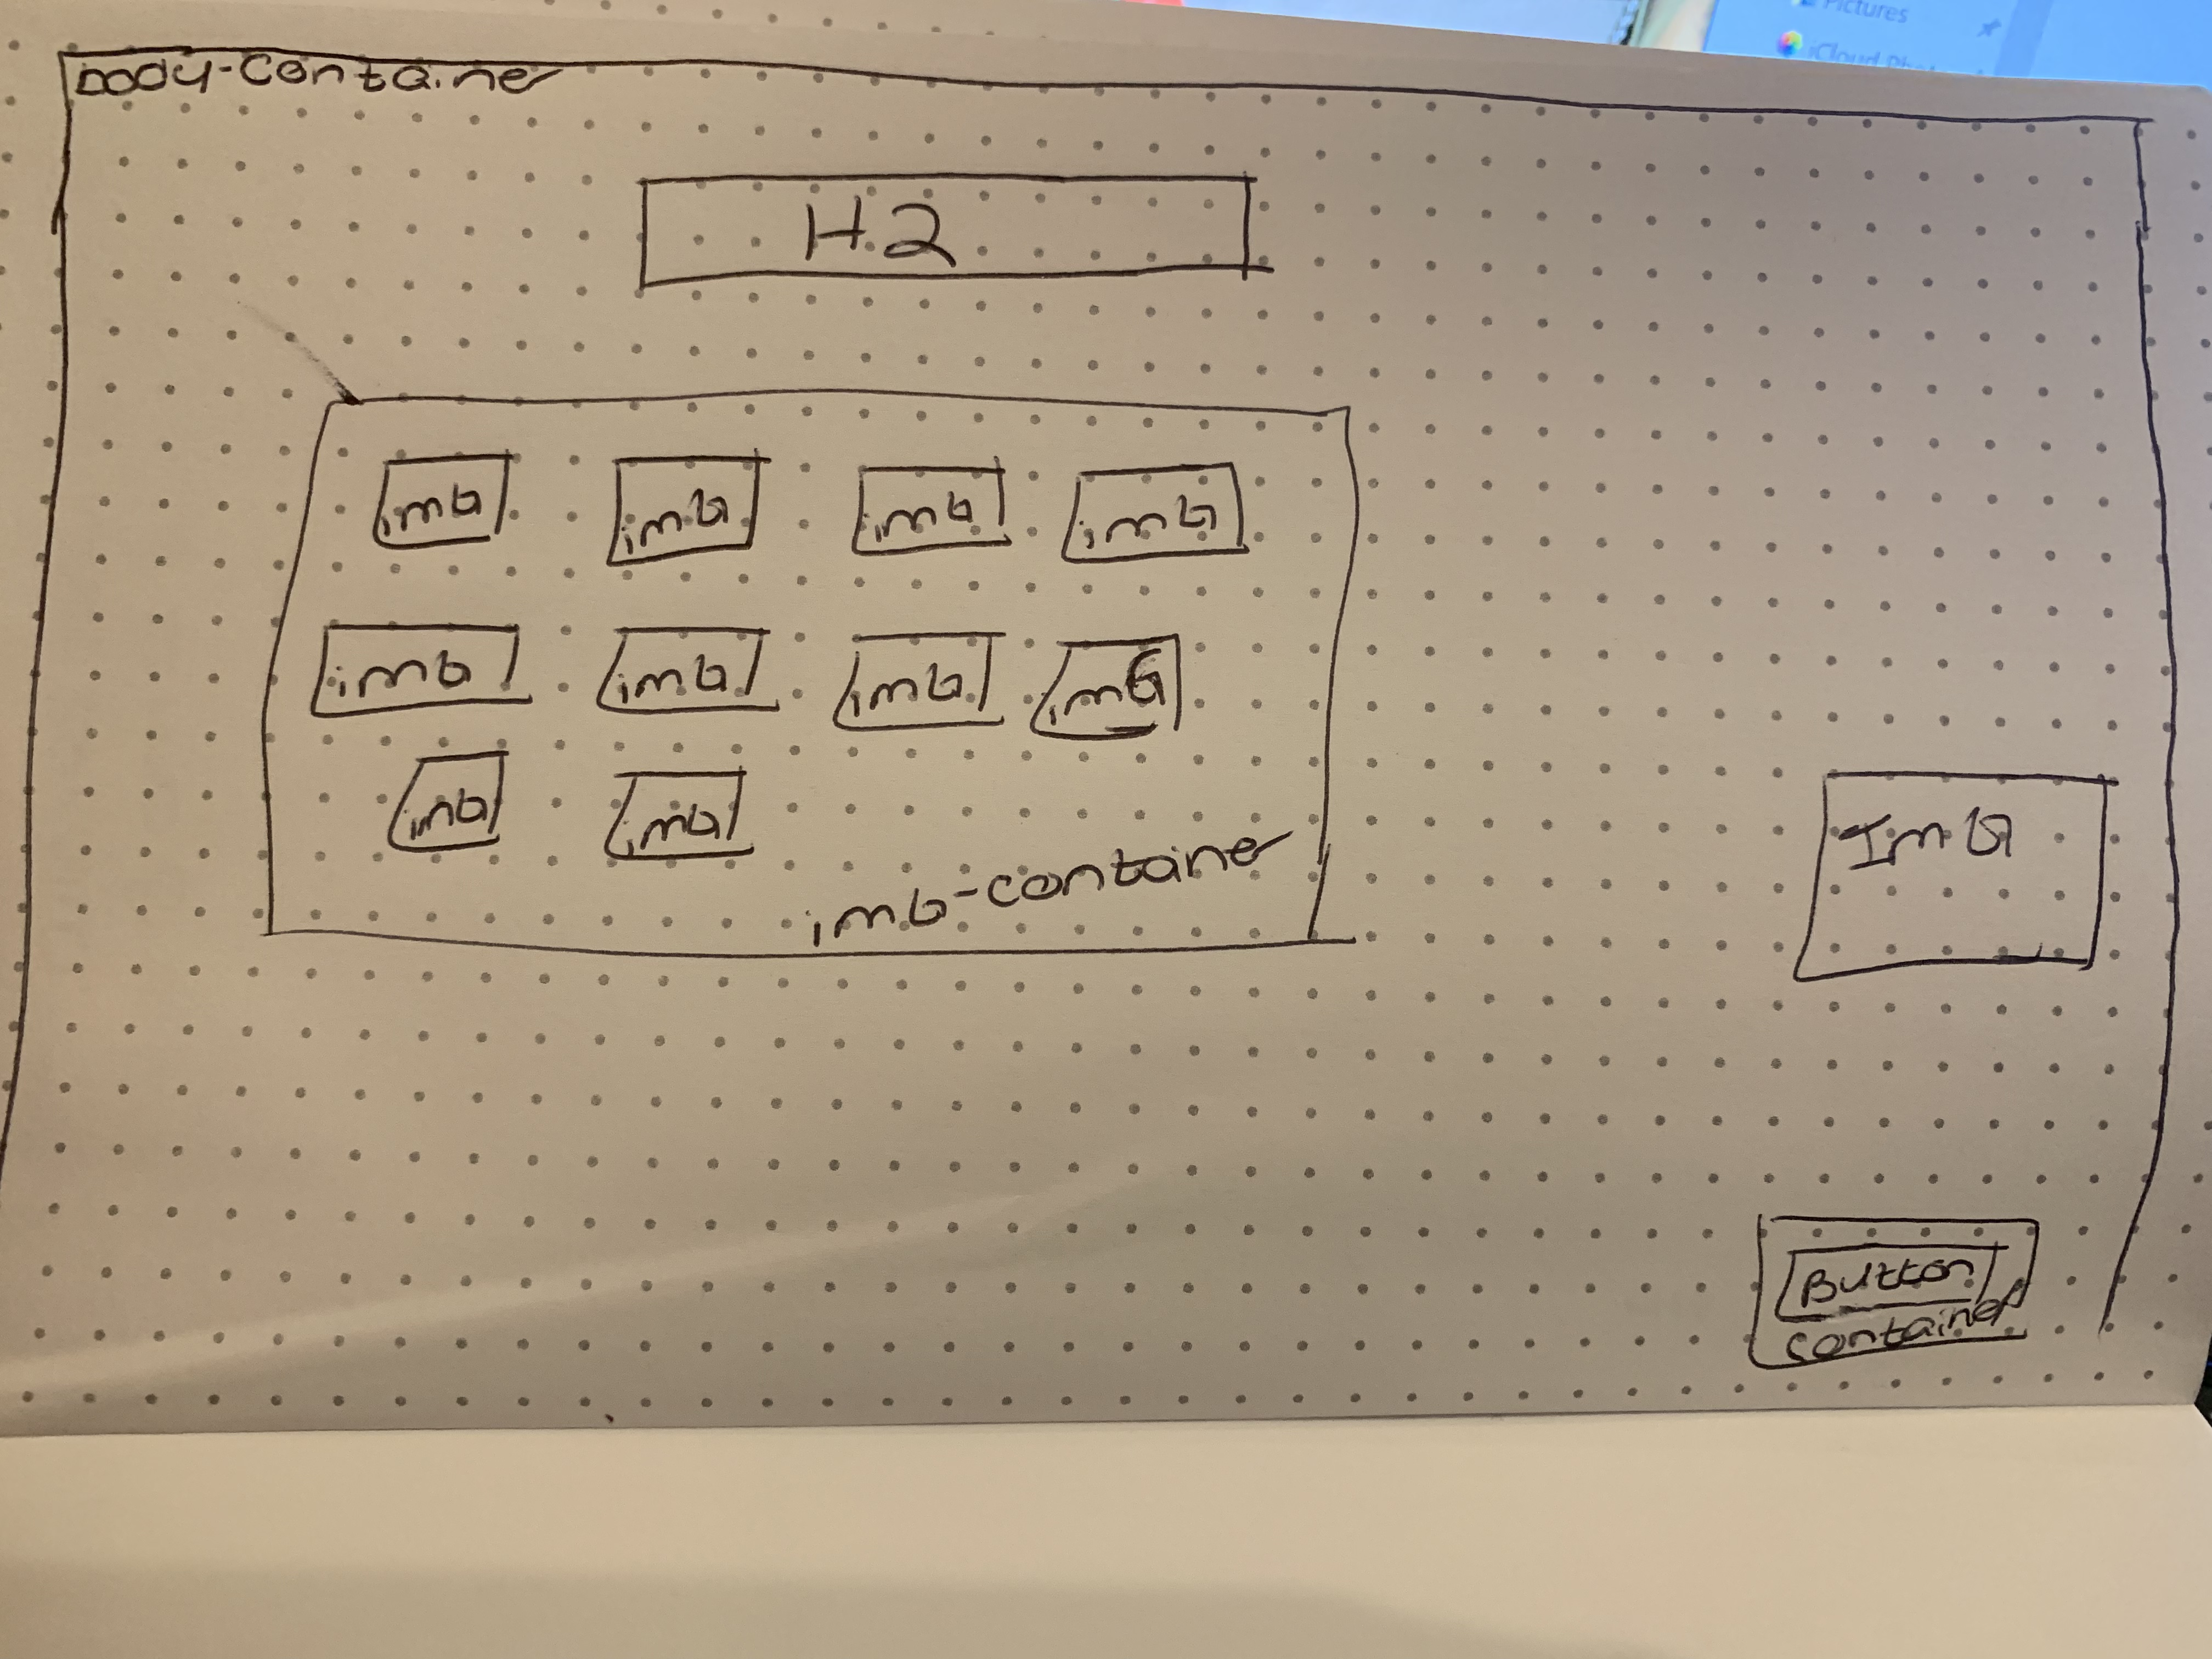 Pictures
iCloud Phot
body-Container
H2
img img img img
img img img img
img img
img-container
ImG
Button
container